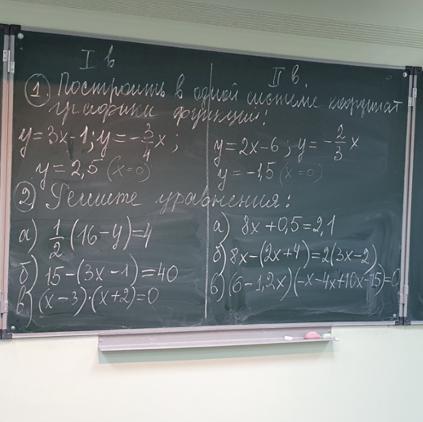 I в
II в
① Построить в одной системе координат
графики функций:
y=3x-1; y=-3/4x;
y=2,5 (x=0)
y=2x-6; y=-2/3x
y=-1,5 (x=0)
② Решите уравнения:
а) 1/2(16-y)=4
б) 15-(3x-1)=40
в) (x-3)·(x+2)=0
а) 8x+0,5=2,1
б) 8x-(2x+4)=2(3x-2)
в) (6-1,2x)(-x-4x+10x-15)=0